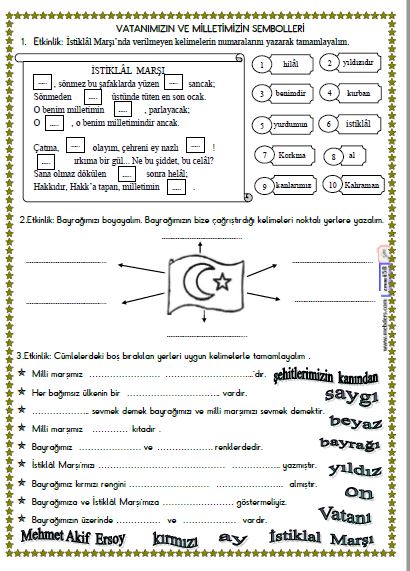 VATANIMIZIN VE MİLLETİMİZİN SEMBOLLERİ
1. Etkinlik: İstiklâl Marşı'nda verilmeyen kelimelerin numaralarını yazarak tamamlayalım.
İSTİKLÂL MARŞI
....., sönmez bu şafaklarda yüzen ..... sancak;
Sönmeden ..... üstünde tüten en son ocak.
O benim milletimin ....., parlayacak;
O ....., o benim milletimindir ancak.
Çatma, ..... olayım, çehreni ey nazlı ..... !
..... ırkıma bir gül... Ne bu şiddet, bu celâl?
Sana olmaz dökülen ..... sonra helâl;
Hakkıdır, Hakk'a tapan, milletimin ..... .
1 hilâl
2 yıldızıdır
3 benimdir
4 kurban
5 yurdumun
6 istiklâl
7 Korkma
8 al
9 kanlarımız
10 Kahraman
2.Etkinlik: Bayrağımızı boyayalım. Bayrağımızın bize çağrıştırdığı kelimeleri noktalı yerlere yazalım.
3.Etkinlik: Cümlelerdeki boş bırakılan yerleri uygun kelimelerle tamamlayalım .
Milli marşımız ..................... ........................'dır.
Her bağımsız ülkenin bir ........................... vardır.
................. sevmek demek bayrağımızı ve milli marşımızı sevmek demektir.
Milli marşımız ............ kıtadır .
Bayrağımız .................. ve .................. renklerdedir.
İstiklâl Marşı'mızı ........................ ..................... yazmıştır.
Bayrağımız kırmızı rengini ........................ ............... almıştır.
Bayrağımıza ve İstiklâl Marşı'mıza ................. göstermeliyiz.
Bayrağımızın üzerinde ............ ve ............... vardır.
şehitlerimizin kanından
saygı
beyaz
bayrağı
yıldız
on
Vatanı
Mehmet Akif Ersoy kırmızı ay İstiklal Marşı